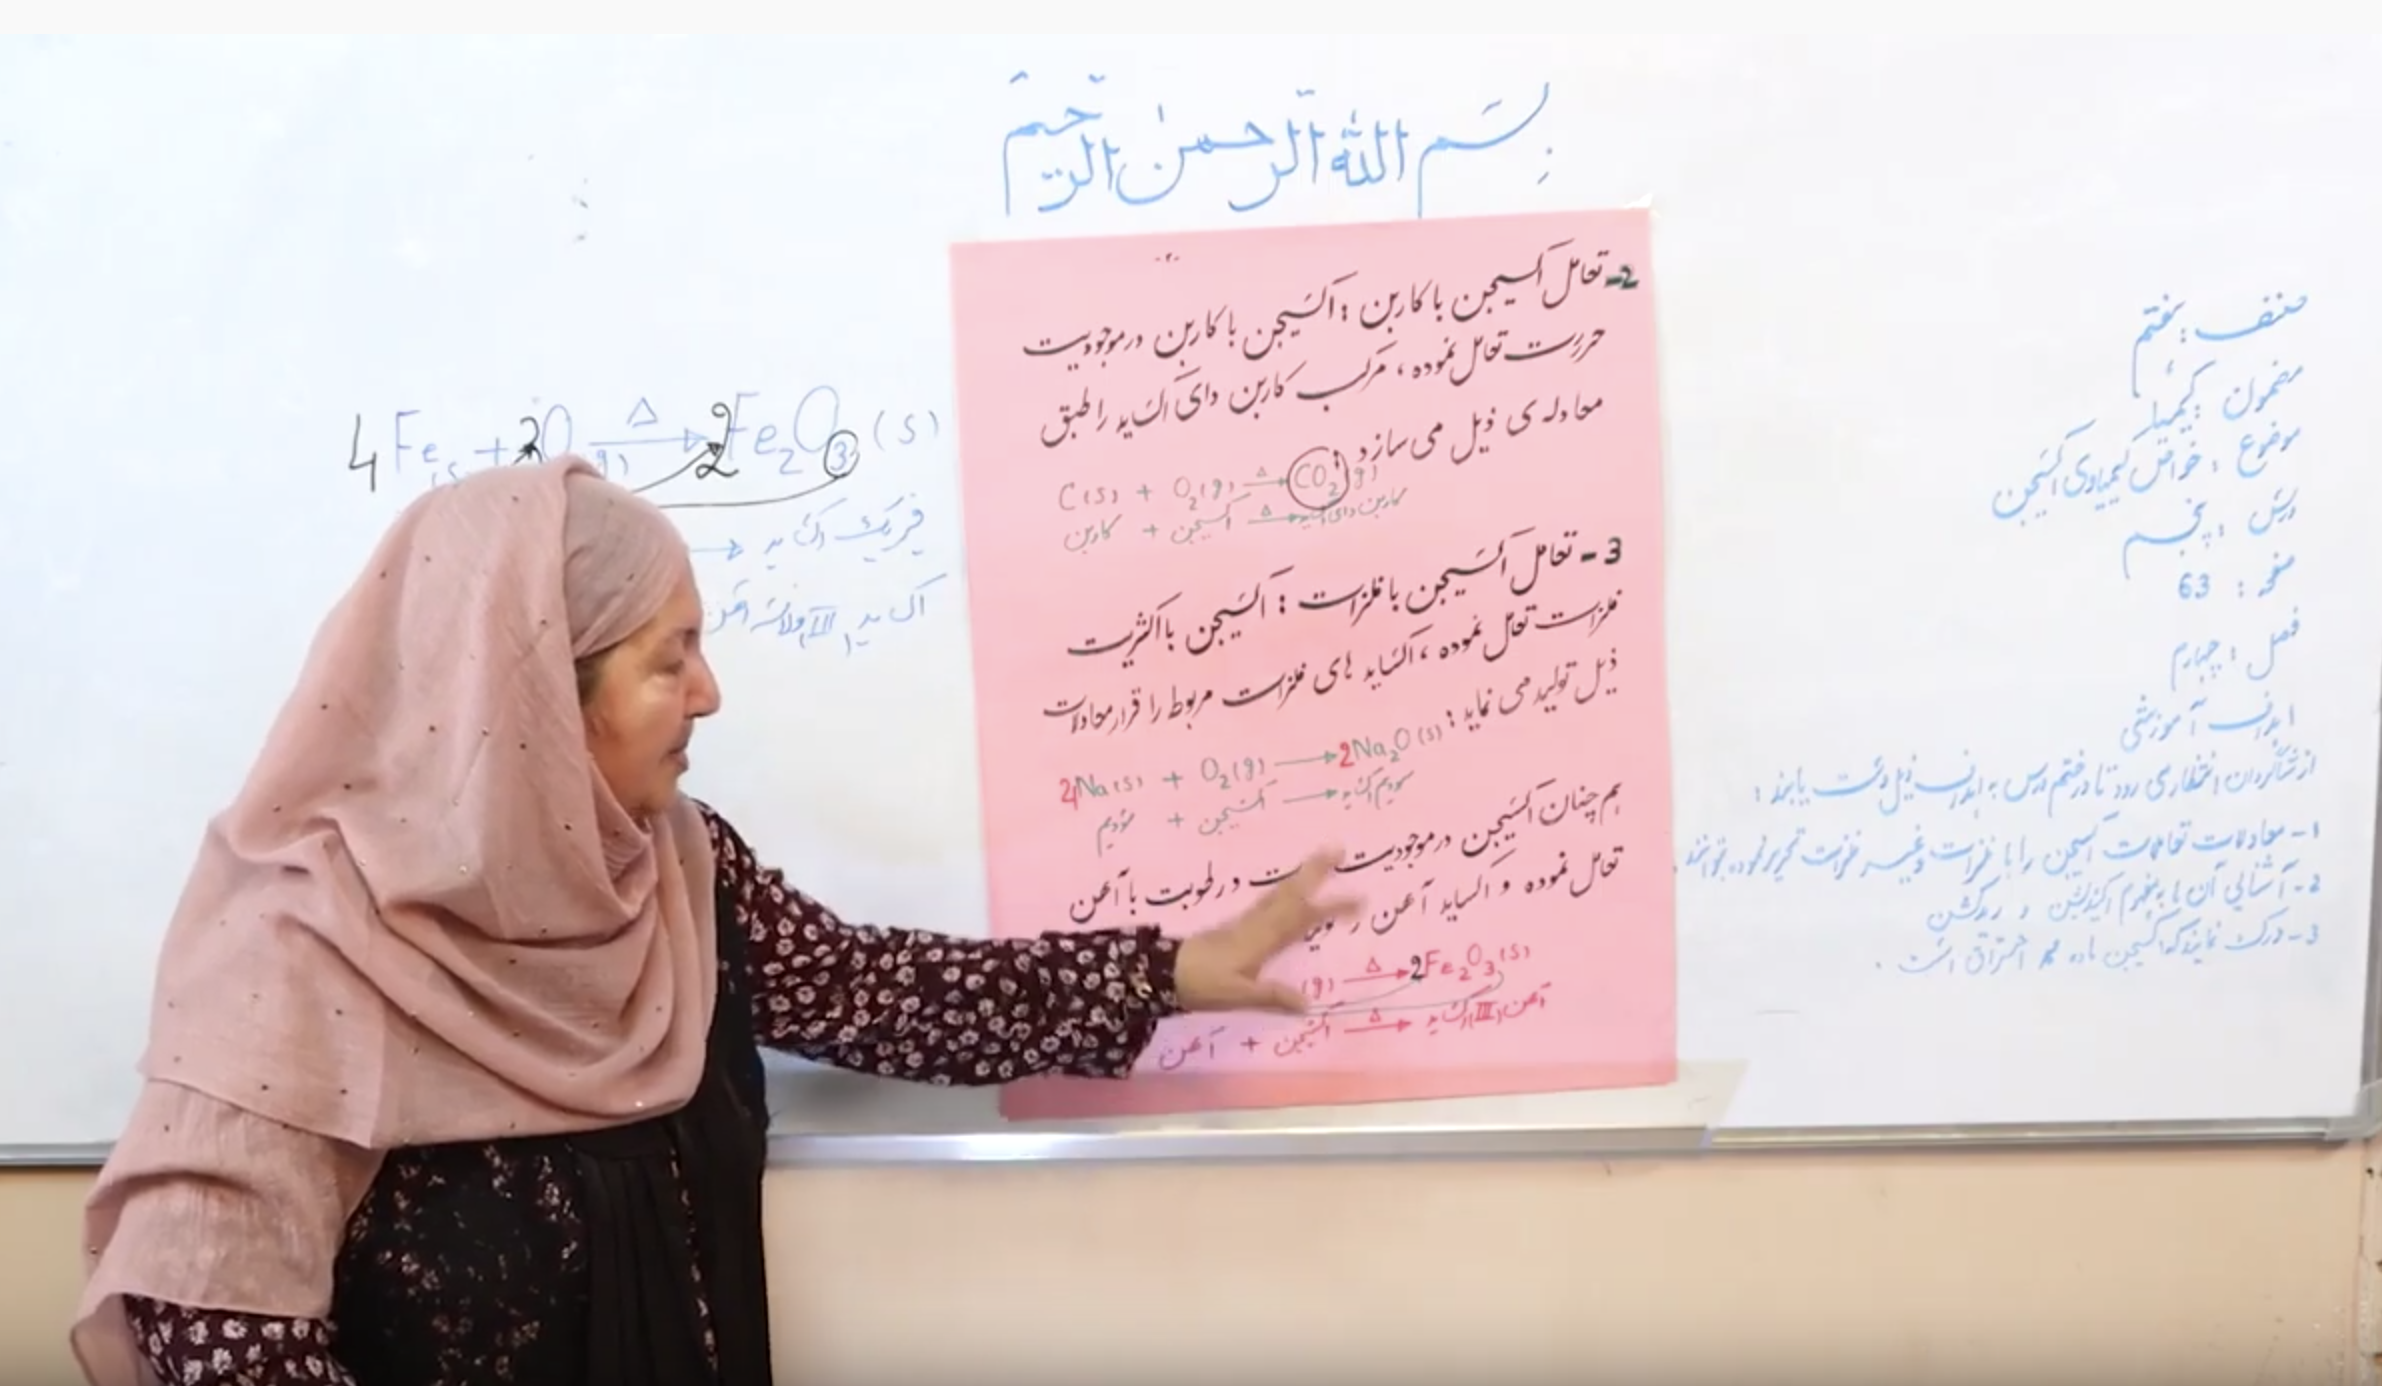 بسم الله الرحمن الرحيم
صنف: هفتم
مضمون: کیمیا
موضوع: خواص کیمیاوی آکسیجن
درس: پنجم
صفحه: 63
فصل: چهارم
اهداف آموزشی
از شاگردان انتظار می رود تا در ختم درس به اهداف ذیل دست یابند:
1- معادلات تعاملات آکسیجن را با فلزات و غیر فلزات تحریر نموده بتوانند.
2- آشنایی آن ها به مفهوم اکیدیشن و ریدکشن
3- درک نمایند که آکسیجن ماده ممد احتراق است.
-۲-
2- تعامل آکسیجن با کاربن: آکسیجن با کاربن در موجودیت
حررت تعامل نموده، مرکب کاربن دای اکساید را طبق
معادله ی ذیل می سازد:
C(s) + O2(g) Δ→ CO2(g)
کاربن + آکسیجن Δ→ کاربن دای اکساید
3- تعامل آکسیجن با فلزات: آکسیجن با اکثریت
فلزات تعامل نموده، اکساید های فلزات مربوط را قرار معادلات
ذیل تولید می نماید:
4Na(s) + O2(g) → 2Na2O(s)
سودیم + آکسیجن → سودیم اکساید
هم چنان آکسیجن در موجودیت در رطوبت با آهن
تعامل نموده و اکساید آهن را
(g) Δ→ 2Fe2O3(s)
آهن + آکسیجن Δ→ آهن (III) اکساید
4Fe(s) + 3O (g) Δ→ 2Fe2O3(s)
→ فریک اکساید
اکساید (III) ولانسه آهن